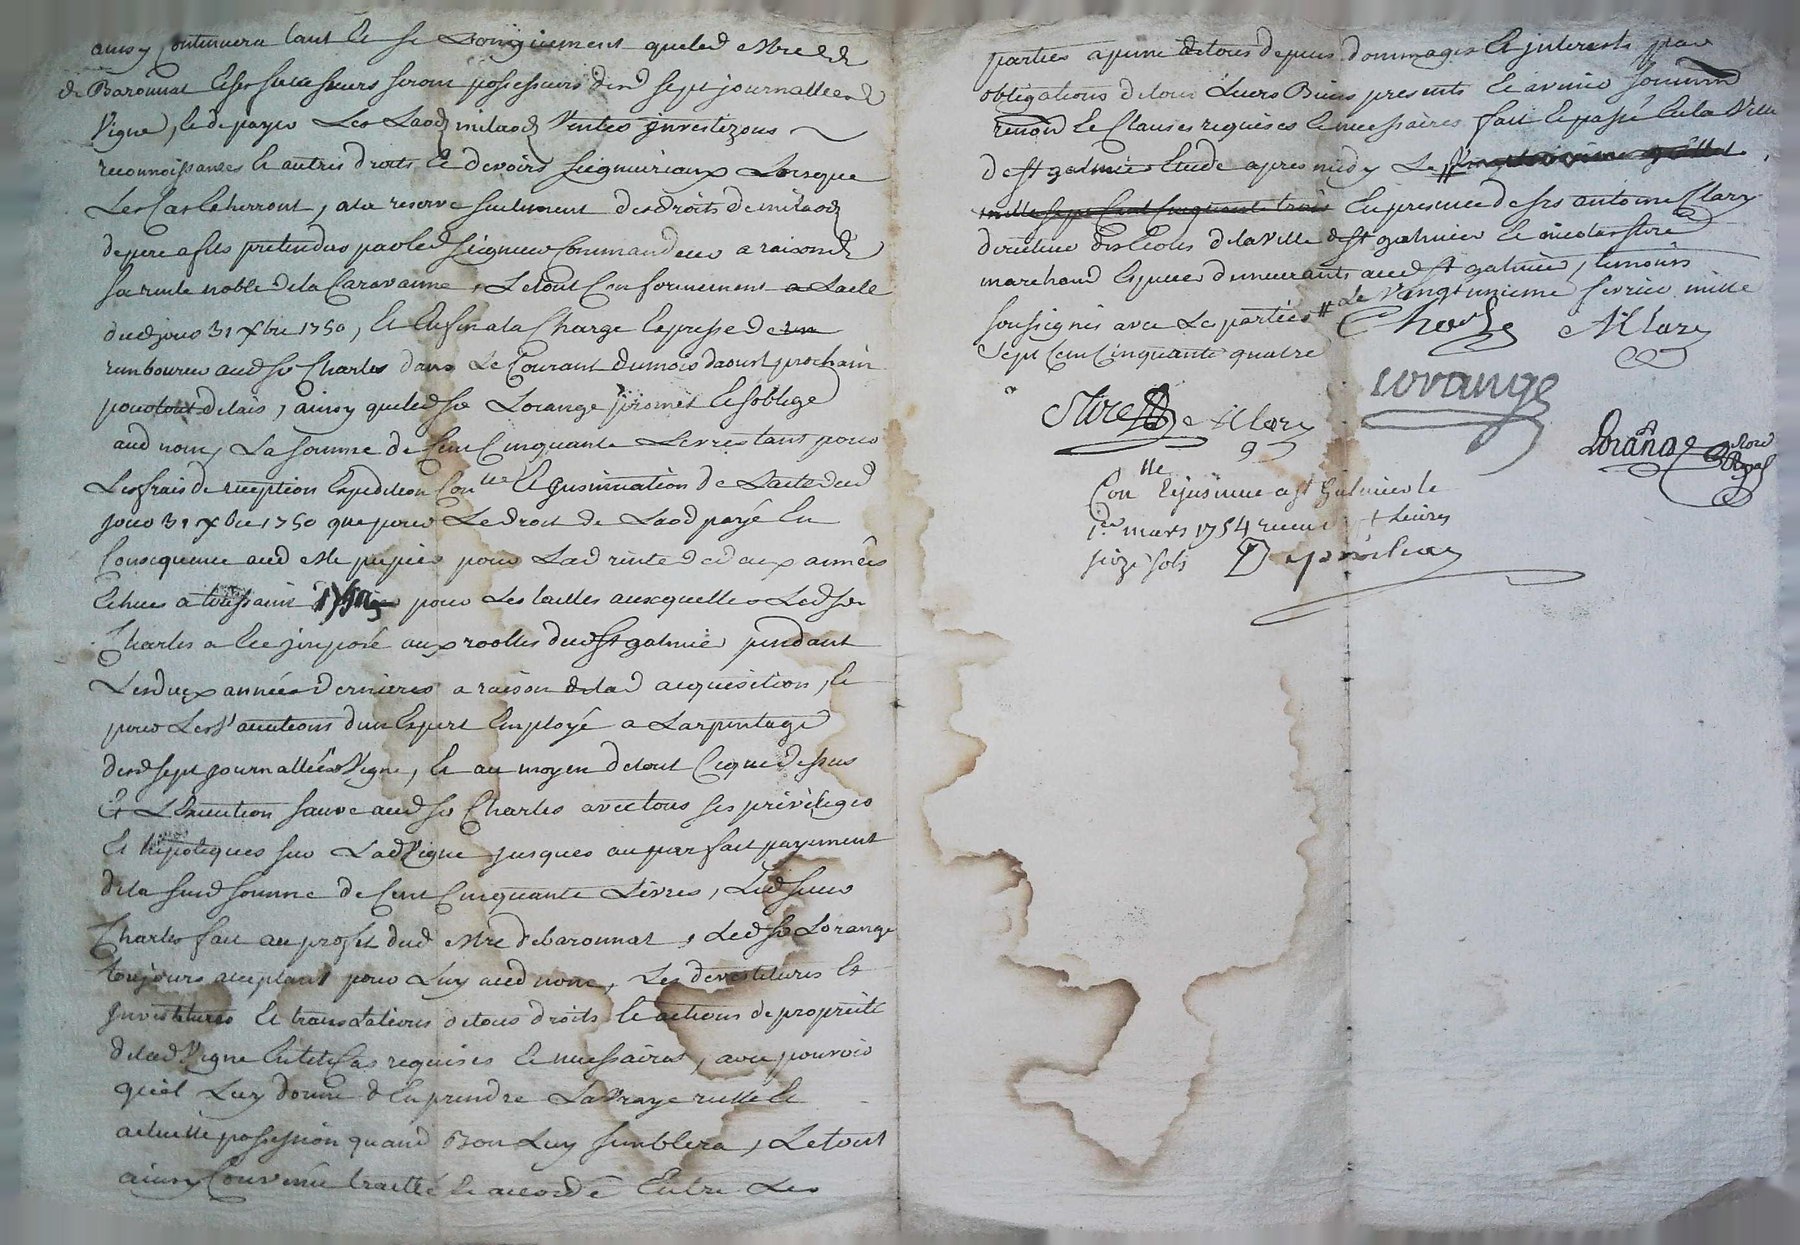 ainsy continuera tant et si longuement queled Mre
de Baronnat et ses successeurs seront possesseurs desd sept journallées
Vigne, et de payer Les Laods milaods Ventes investizons
reconnoissances et autres droits et devoirs seigneuriaux Lorsque
Les Cas Echerront, a la reserve seulement des droits de milaods
de pere a fils pretendus par led seigneur Commandeur a raison de
sa rente noble de la Caravanne, Le tout Conformement a Lacte
dud jour 31 xbre 1750, Et Enfin a la Charge Expresse de
rembourcer aud sr Charles dans Le Courant du mois daoust prochain
pour tout delais, ainsy queled sr Lorange promet et soblige
aud nom, La somme de Cent Cinquante Livres tant pour
Les frais de reception Expedition Conlle Et insinuation de Lacte dud
jour 31 xbre 1750 que pour Le droit de Laod payé En
Consequence aud pour Lad rente de deux années
Echues a toussaint pour Les tailles auxquelles Led sr
Charles a Eté imposé aux roolles dud st galmier pendant
Les deux années dernieres a raison de lad acquisition, Et
pour Les Vacations dun Expert Employé a Larpentage
desd sept journallées Vigne, Et au moyen de tout Ce que dessus
Et L'Execution sauve aud sr Charles avec tous ses privileges
Et hipoteques sur Lad Vigne jusques au parfait payement
de la susd somme de Cent Cinquante Livres, Led sieur
Charles fait au profit dud Mre de baronnat, Led sr Lorange
toujours acceptant pour Luy aud nom, Les devestitures Et
Investitures Et translations de tous droits et actions de proprieté
de lad Vigne En tel Cas requises Et necessaires, avec pouvoir
quil Luy donne d En prendre La Vraye reelle Et
actuelle possession quand Bon Luy semblera, Le tout
ainsy Convenu traitté et accordé Entre Les
parties a peine de tous depens dommages Et interests par
obligations de tous Leurs Biens presents Et avenir soumis
renon Et Clauses requises Et necessaires fait Et passé En la Ville
de st galmier Etude apres midy Le #
mille sept Cent Cinquante trois En presence de srs antoine Clary
directeur des Ecoles de la Ville de st galmier Et nicolas Stire
marchand Espicier demeurants aud st galmier, temoins
soussignés avec Les parties # Le Vingt unieme fevrier mille
sept Cent Cinquante quatre
Charles Clary
Lorange
Stire Clary
Lorange Notre Royal
Conlle Et insinué a st Galmier le
1er mars 1754 receu livres
seize sols